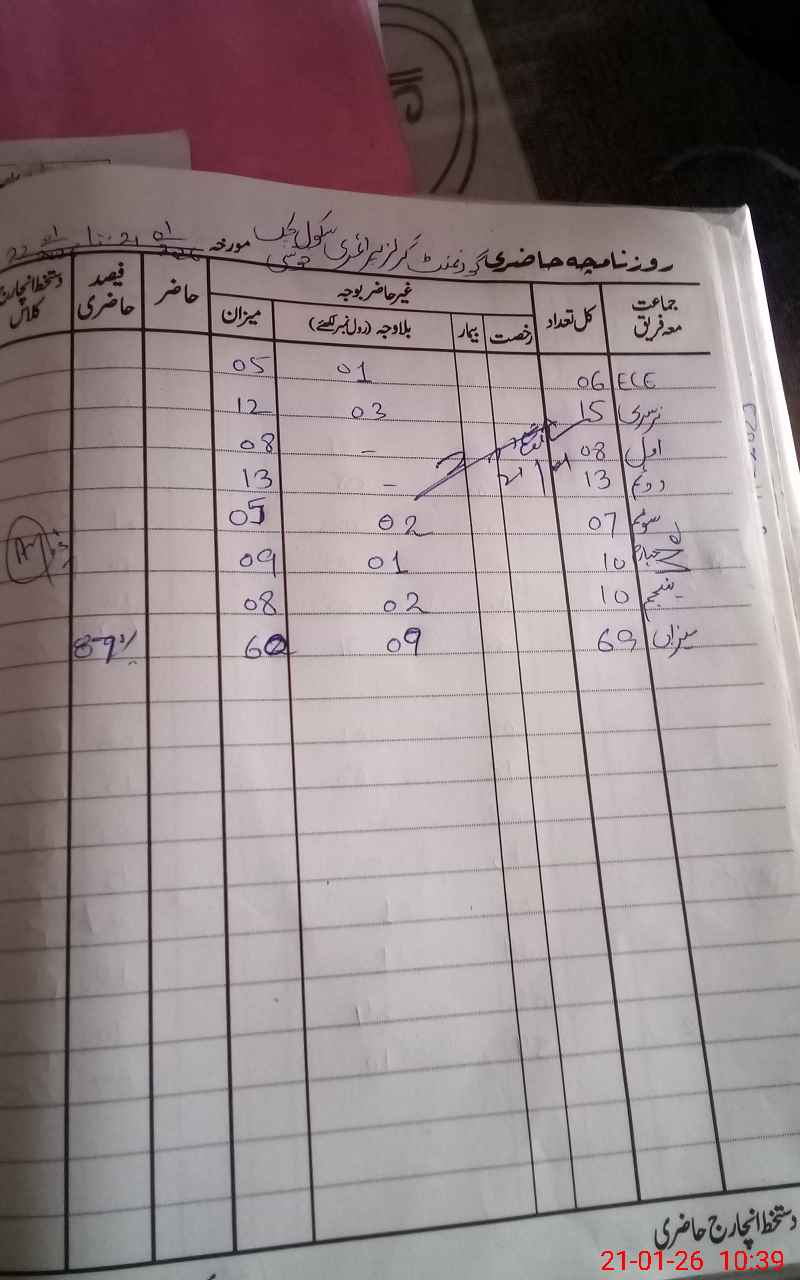 روزنامچہ حاضری گورنمنٹ گرلز پرائمری سکول چک مورخہ 21 01/2026 تا 22 01/2026
جماعت معہ فریق کل تعداد غیر حاضر بوجہ حاضر فیصد حاضری دستخط انچارج کلاس
رخصت بیمار بلاوجہ (رول نمبر لکھئے) میزان
ECE 06 01 05
نرسری 15 03 12
اول 08 - 08
دوئم 13 - 13
سوئم 07 02 05
چہارم 10 01 09
پنجم 10 02 08
میزان 69 09 60 87%
دستخط انچارج حاضری
21-01-26 10:39